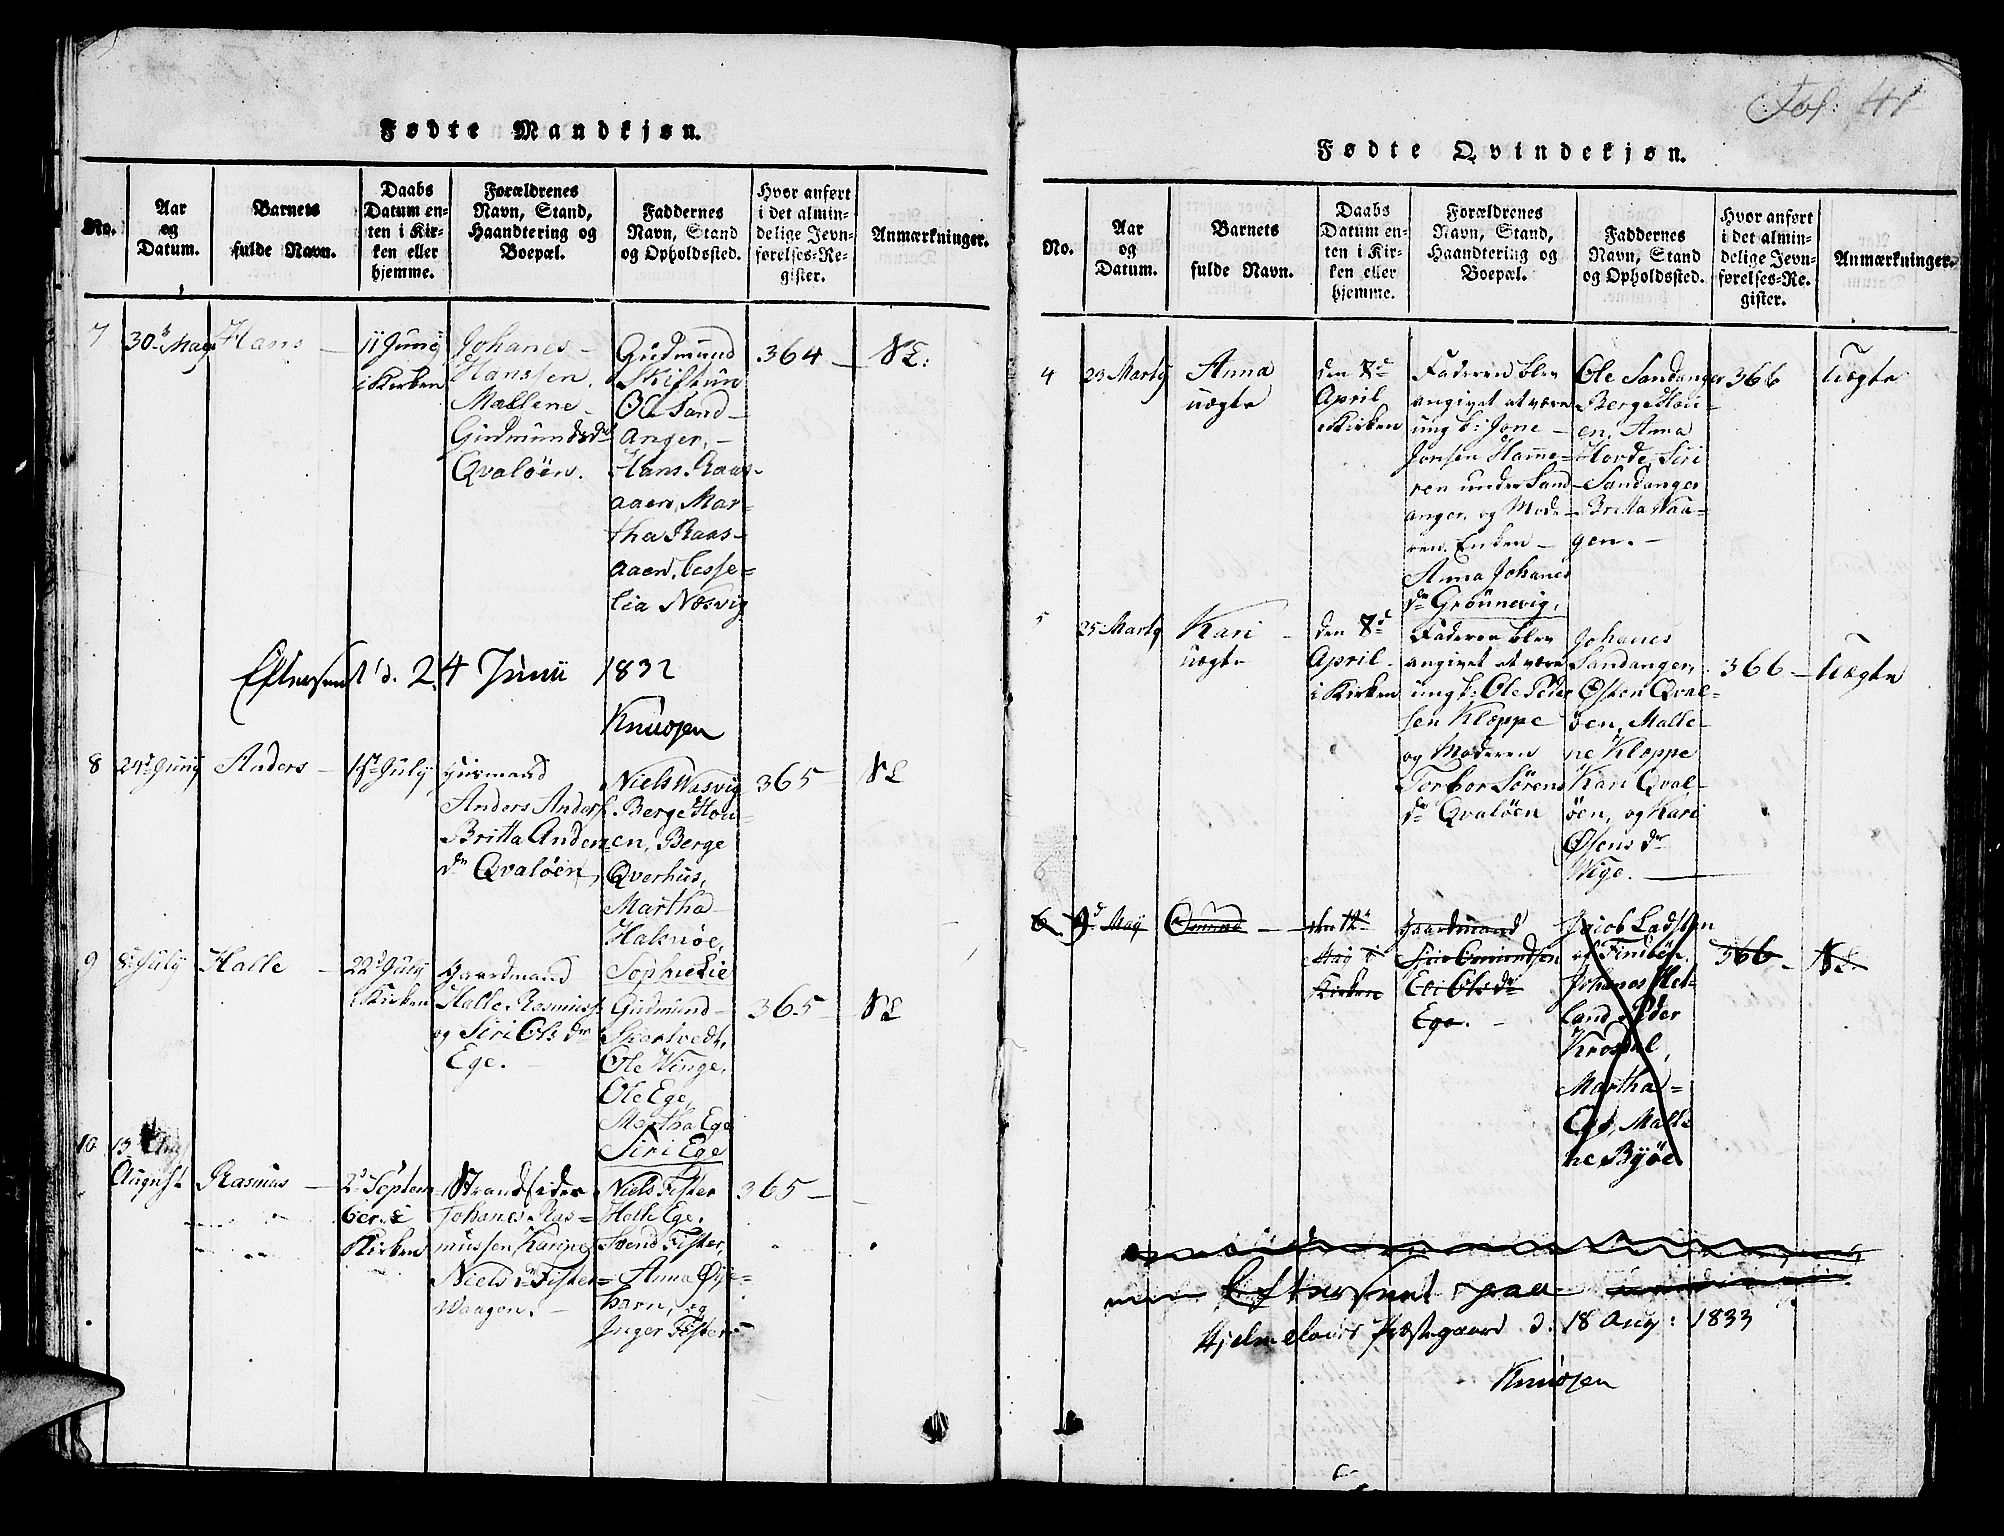 Fødte Mandkjøn.
No.
Aar
og
Datum.
Barnets
fulde Navn.
Daabs
Datum en-
ten i Kir-
ken eller
hjemme.
Forældrenes
Navn, Stand,
Haandtering og
Boepæl.
Faddernes
Navn, Stand
og Opholdssted.
Hvor anført
i det almin-
delige Jevn-
førelses-Re-
gister.
Anmærkninger.
7
30te May
Hans –
11 Junii
i Kirken
Johanes –
Hanssen.
Mallene –
Gudmundsdr
Qvaløen.
Gudmund
Skiftun
Ole Sand-
anger, –
Hans Raas-
aaen, Mar-
tha Raas-
aaen, Cesse-
lia Næsvig
364 –
NL:
Efterseet d. 24 Junii 1832
Knudsen
8
24de Junij
Anders –
1ste July
Huusmand
Anders Anders.
Britta Anders-
dr Qvaløen,
Niels Wasvig
Berge Hou-
en, Berge
Qverhus,
Martha
Halsnøe,
Sophie Lie
365 –
NL
9
8de July
Halle –
22de July
i Kirken
Gaardmand
Halle Rasmuss.
og Siri Ols dr
Ege. –
Gudmund –
Skartvedt,
Ole Winge,
Ole Ege,
Martha Ege
Siri Ege
365 –
NL
10
13de Aug
August
Rasmus –
2d Septem
ber i
Kirken
Strandsider
Johanes Ras=
mussen Karine
Niels dr Fister=
Waagen. –
Niels Fister
Halle Ege.
Svend Fister,
Anna Øye=
harn, og
Inger Fister
365 –
Fol: 41
Fødte Qvindekjøn.
No.
Aar
og
Datum.
Barnets
fulde Navn.
Daabs
Datum en-
ten i Kir-
ken eller
hjemme.
Forældrenes
Navn, Stand,
Haandtering og
Boepæl.
Faddernes
Navn, Stand
og Opholdssted.
Hvor anført
i det almin-
delige Jevn-
førelses-Re-
gister.
Anmærkninger.
4
23 Martij
Anna
uægte
den 7de
April
i Kirken
Faderen blev
angivet at være
ungk: Jone –
Jonsen Hamme-
ren under Sand
anger, og Mode-
ren. Enken –
Anna Johanes
dr Grønnevig,
Ole Sandanger
Berge Hou-
en, Anna
Horde, Siri
Sandanger
Britta Waa-
gen. –
366
Uægte
5
25 Martij
Kari –
uægte
den 7de
April
i Kirken
Faderen blev
angivet at være
ungk: Ole Peder
sen Kloppe
og Moderen
Torbor Sørens
dr Qvaløen
Johanes
Sandanger,
Østen Qval-
øen, Malle-
ne Kloppe
Kari Qval-
øen, og Kari
Østens dr
Wige. –
366 –
Uægte
6
9d May
Omund –
den 12te
May i
Kirken
Gaardmand
Siri Omundsen
Eli Ols dr
Ege. –
Jacob Ladsten
af Findøe.
Johanes Het-
land, Peder
Krossel,
Martha –
Ege, Malle
ne Byøe
366
NL.
Efterseet paa
Hjelmelands Præstegaard d. 18 Aug: 1833
Knudsen